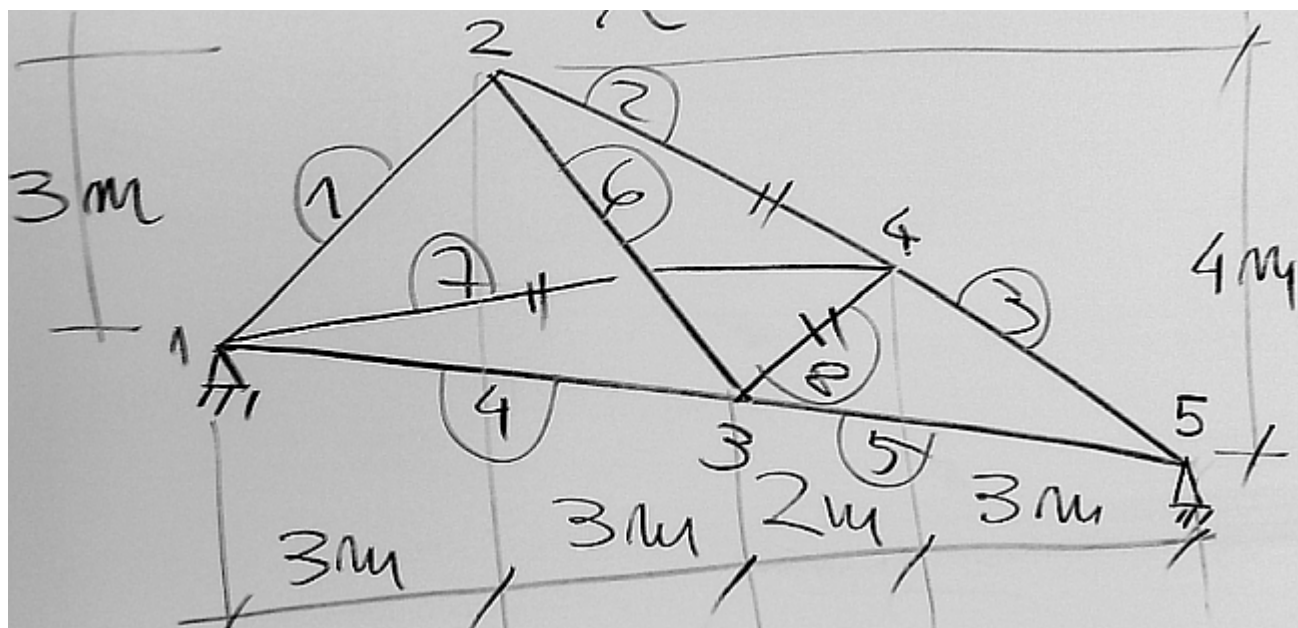 2
2
3m
1
6
4
7
3
4m
1
8
4
3
5
5
3m
3m
2m
3m